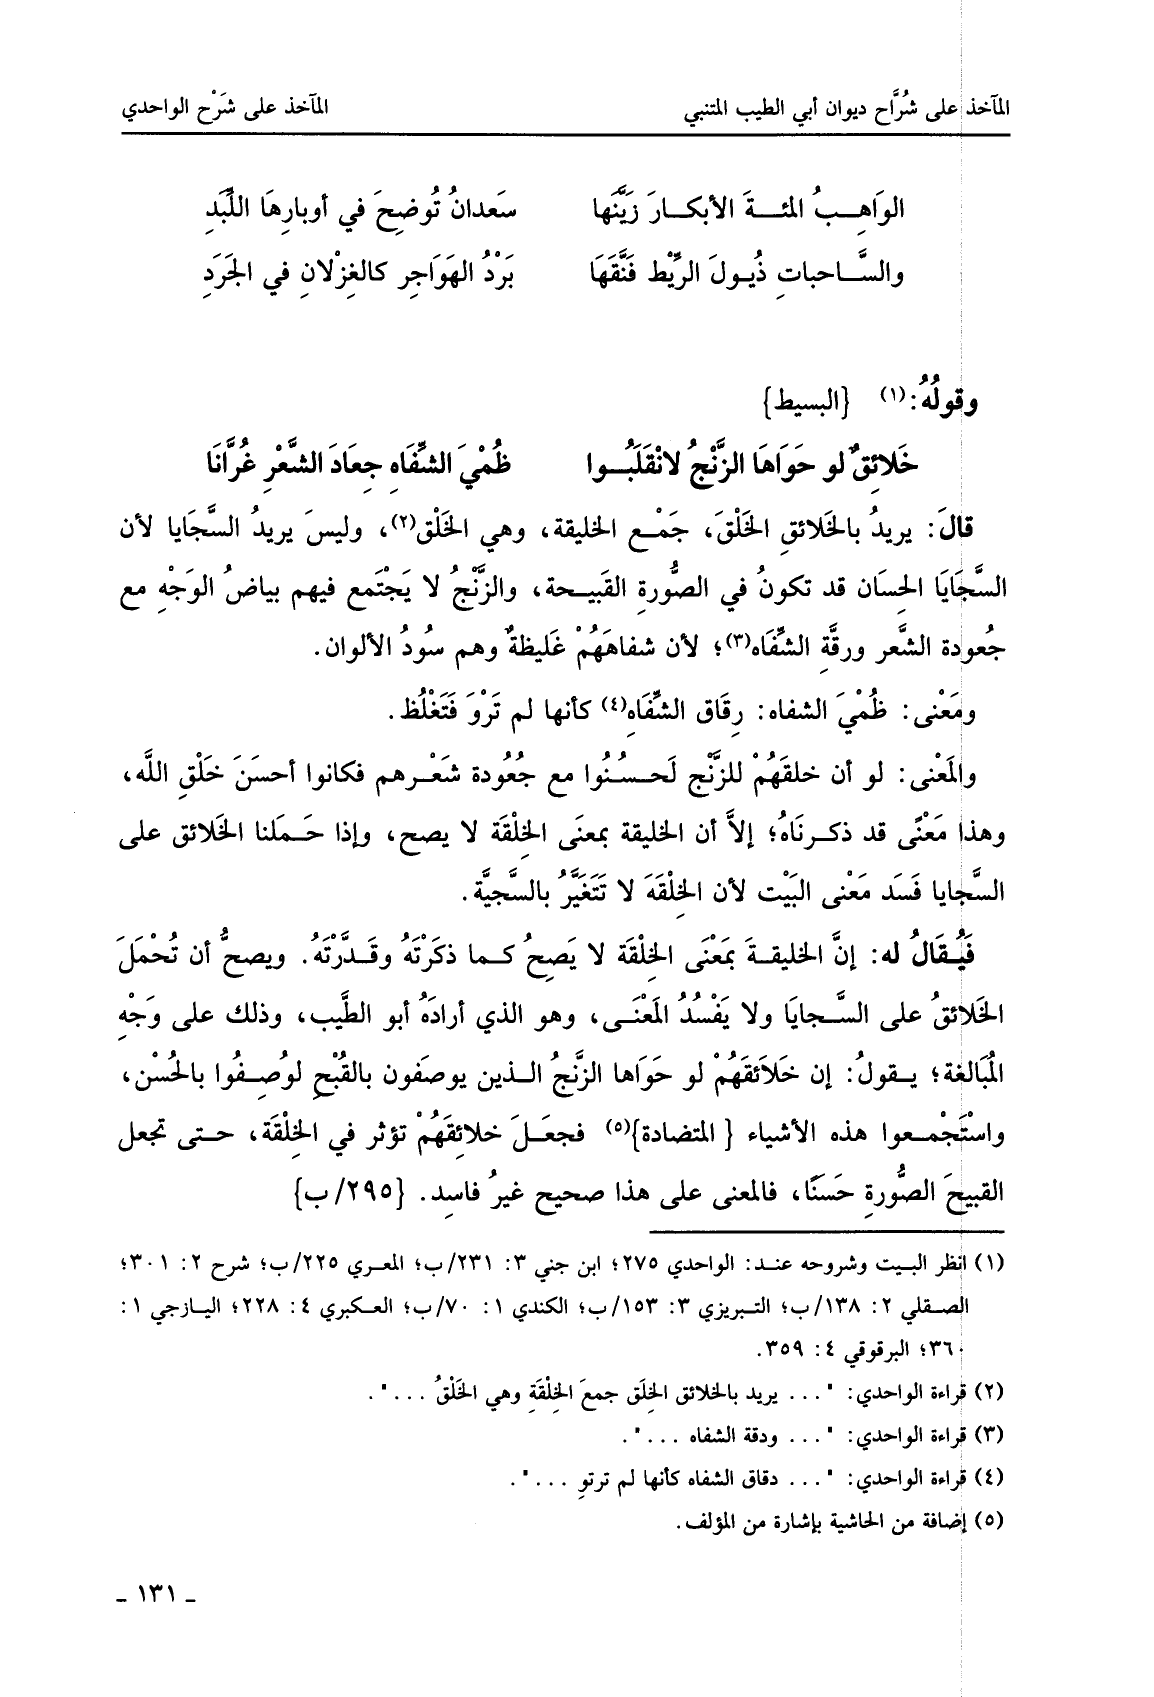 المآخذ على شُرَّاح ديوان أبي الطيب المتنبي المآخذ على شَرْح الواحدي
الوَاهِبُ المئةَ الأبكارَ زَيَّنَها سَعدانُ تُوضِحَ في أوبارِهَا اللِّبَدِ
والسَّاحباتِ ذُيولَ الرِّيْط فَنَّقَهَا بَرْدُ الهَوَاجِرِ كالغِزْلانِ في الجَرَدِ
وقولُهُ: (١) {البسيط}
خَلائِقٌ لو حَوَاهَا الزَّنْجُ لانْقَلَبُوا ظُمْيَ الشِّفَاهِ جِعَادَ الشَّعْرِ غُرَّانَا
قالَ: يريدُ بالخَلائقِ الخَلْقَ، جَمْع الخليقة، وهي الخَلْق(٢)، وليسَ يريدُ السَّجَايا لأن
السَّجَايَا الحِسَان قد تكونُ في الصُّورةِ القَبيحة، والزَّنْجُ لا يَجْتَمع فيهم بياضُ الوَجْهِ مع
جُعودة الشَّعر ورقَّةِ الشِّفَاه(٣)؛ لأن شفاهَهُمْ غَليظةٌ وهم سُودُ الألوان.
ومَعْنى: ظُمْيَ الشفاه: رِقَاق الشِّفَاهِ(٤) كأنها لم تَرْوَ فَتَغْلُظ.
والمَعْنى: لو أن خلقَهُمْ للزَّنْج لَحسُنُوا مع جُعُودة شَعْرهم فكانوا أحسَنَ خَلْقِ اللَّه،
وهذا مَعْنًى قد ذكرنَاهُ؛ إلاَّ أن الخليقة بمعنَى الخِلْقَة لا يصح، وإذا حَمَلنا الخَلائق على
السَّجايا فَسَد مَعْنى البَيْت لأن الخِلْقَةَ لا تَتَغَيَّرُ بالسَّجيَّة.
فَيُقَالُ له: إنَّ الخليقةَ بمَعْنَى الخِلْقَة لا يَصِحُ كما ذكَرْتَهُ وقدَّرْتَهُ. ويصحُّ أن تُحْمَلَ
الخَلائقُ على السَّجايَا ولا يَفْسُدُ المَعْنَى، وهو الذي أرادَهُ أبو الطَّيب، وذلك على وَجْهِ
المُبَالغة؛ يقولُ: إن خَلاَئقَهُمْ لو حَوَاها الزَّنجُ الذين يوصَفون بالقُبْحِ لوُصِفُوا بالحُسْن،
واسْتَجْمعوا هذه الأشياء {المتضادة}(٥) فجعَلَ خلائِقَهُمْ تؤثر في الخِلْقَة، حتى تجعل
القبيحَ الصُّورةِ حَسَنًا، فالمعنى على هذا صحيح غيرُ فاسِد. {٢٩٥/ب}
(١) انظر البيت وشروحه عند: الواحدي ٢٧٥؛ ابن جني ٣: ٢٣١/ب؛ المعري ٢٢٥/ب؛ شرح ٢: ٣٠١؛
الصقلي ٢: ١٣٨/ب؛ التبريزي ٣: ١٥٣/ب؛ الكندي ١: ٧٠/ب؛ العكبري ٤: ٢٢٨؛ اليازجي ١:
٣٦٠؛ البرقوقي ٤: ٣٥٩.
(٢) قراءة الواحدي: "... يريد بالخلائق الخِلَق جمعَ الخِلْقَةِ وهي الخَلْقُ ...".
(٣) قراءة الواحدي: "... ودقة الشفاه ...".
(٤) قراءة الواحدي: "... دقاق الشفاه كأنها لم ترتوِ ...".
(٥) إضافة من الحاشية بإشارة من المؤلف.
ـ ١٣١ ـ